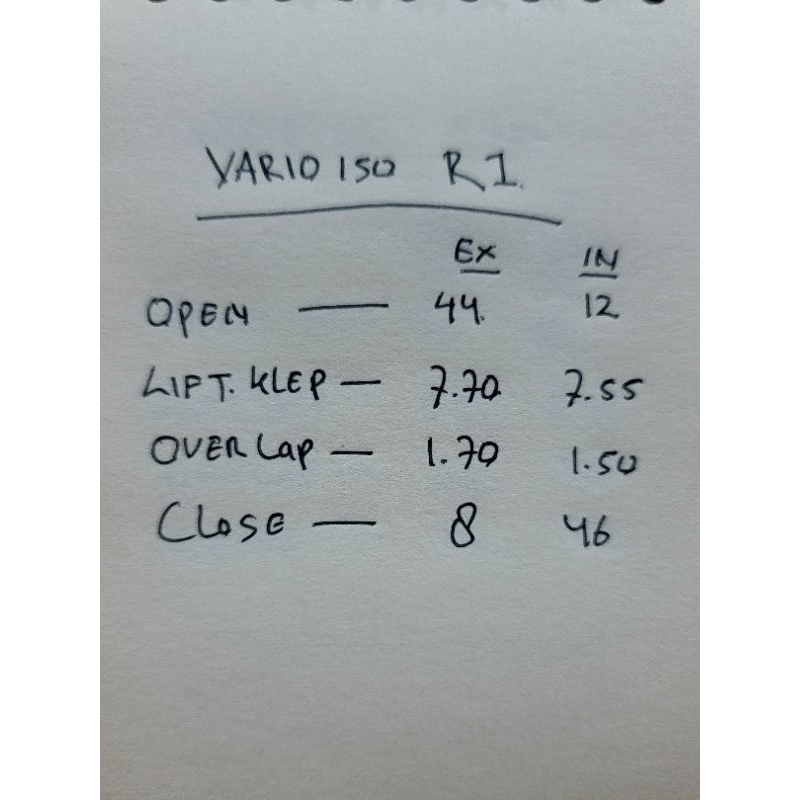 VARIO 150 R1.
EX IN
OPEN — 44. 12
LIFT. KLEP — 7.70 7.55
OVERLAP — 1.70 1.50
CLOSE — 8 46